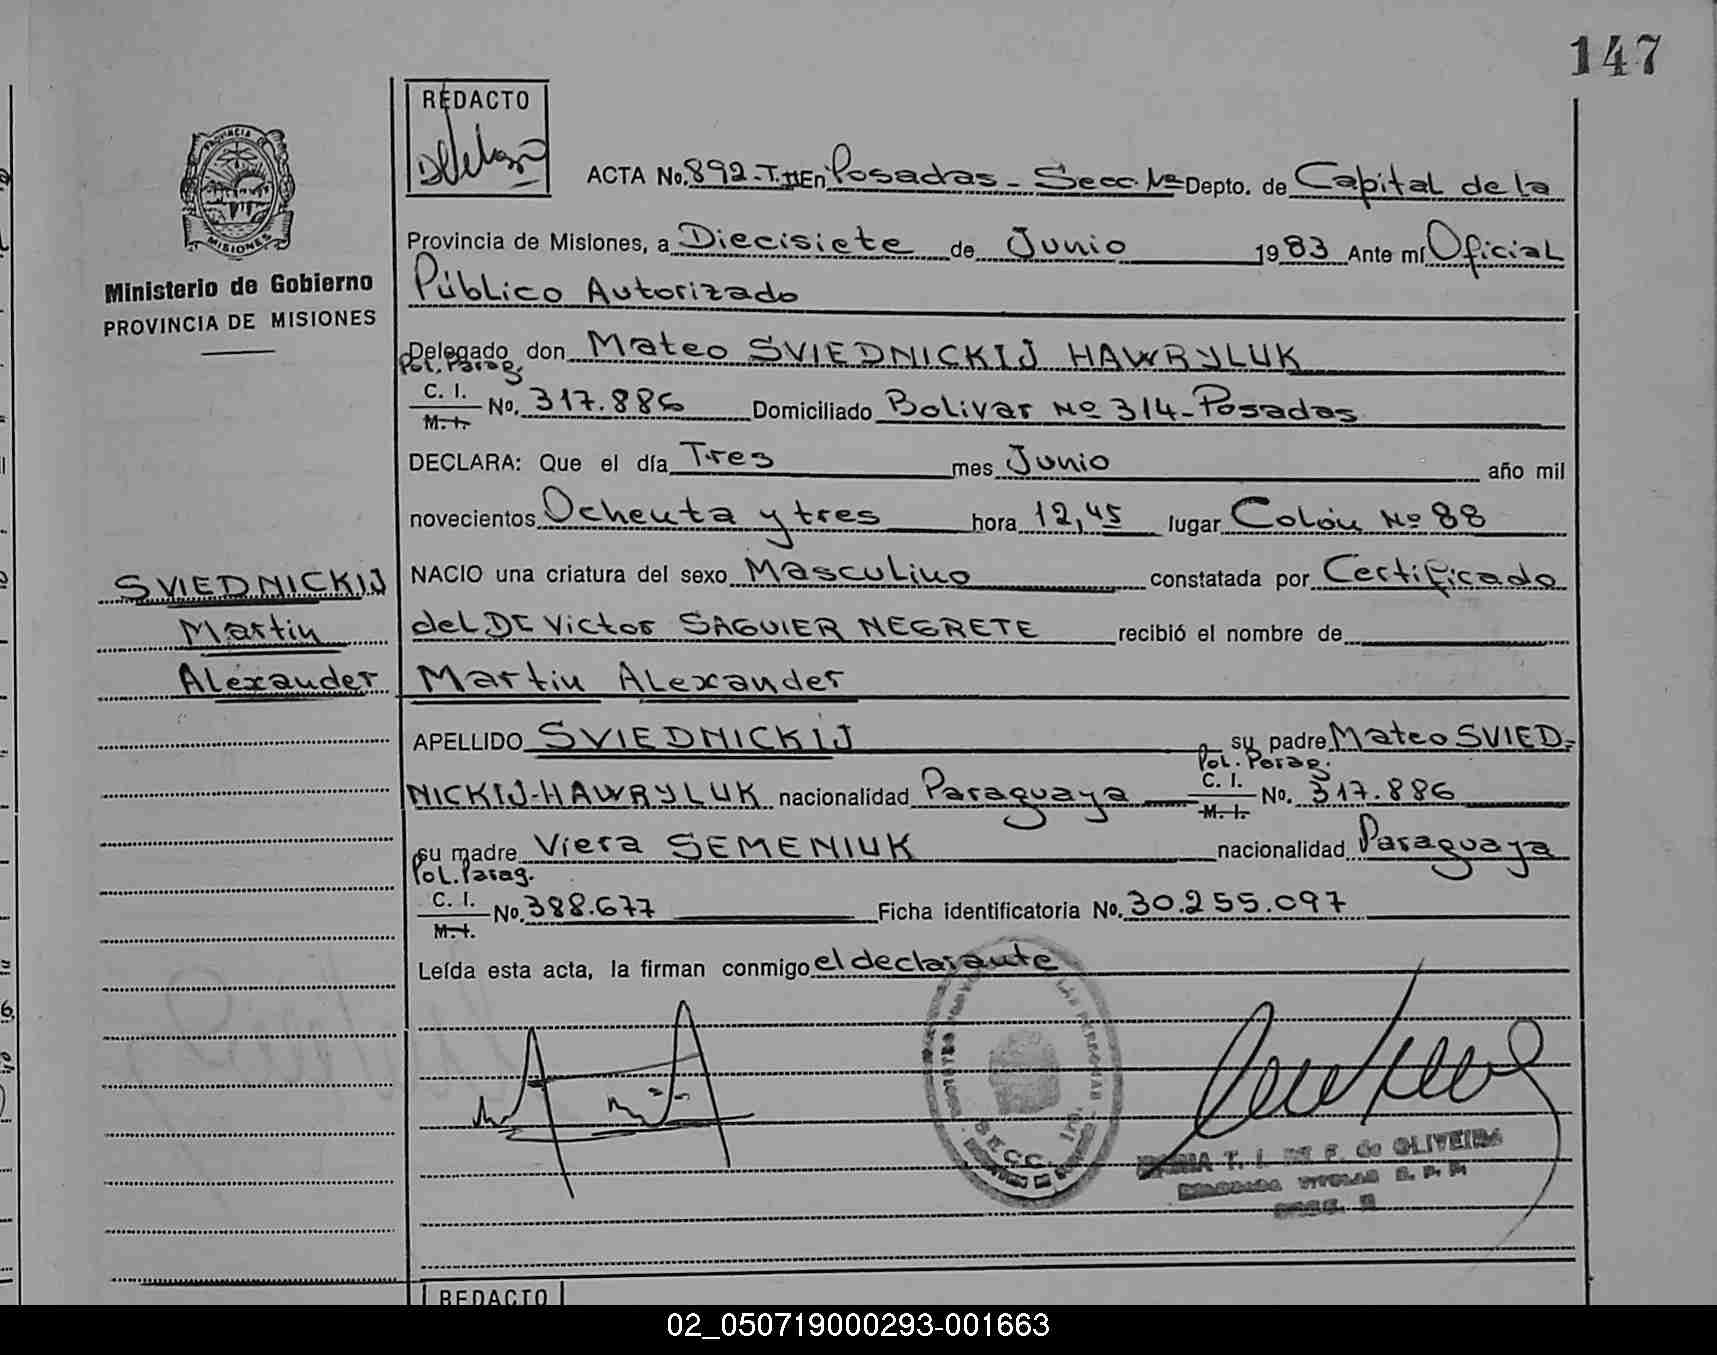 147
REDACTO
ACTA No. 892-T.II En Posadas - Secc. 1ª Depto. de Capital de la
PROVINCIA DE
MISIONES
Provincia de Misiones, a Diecisiete de Junio 1983 Ante mí Oficial
Ministerio de Gobierno
PROVINCIA DE MISIONES
Público Autorizado
Delegado don Mateo SVIEDNICKIJ HAWRYLUK
Pol. Parag.
C. I.
M. I.
No. 317.886 Domiciliado Bolivar Nº 314-Posadas
DECLARA: Que el día Tres mes Junio año mil
novecientos Ochenta y tres hora 12,45 lugar Colón Nº 88
SVIEDNICKIJ
Martin
Alexander
NACIO una criatura del sexo Masculino constatada por Certificado
del Dr Victor SAGUIER NEGRETE recibió el nombre de
Martin Alexander
APELLIDO SVIEDNICKIJ su padre Mateo SVIED-
Pol. Parag.
NICKIJ-HAWRYLUK nacionalidad Paraguaya C. I. No. 317.886
M. I.
su madre Viera SEMENIUK nacionalidad Paraguaya
Pol. Parag.
C. I.
M. I.
No. 388.677 Ficha identificatoria No. 30.255.097
Leída esta acta, la firman conmigo el declarante
LAS PERSONAS
SECC. 1ra
T. I. DE F. de OLIVEIRA
REDACTO
02_050719000293-001663